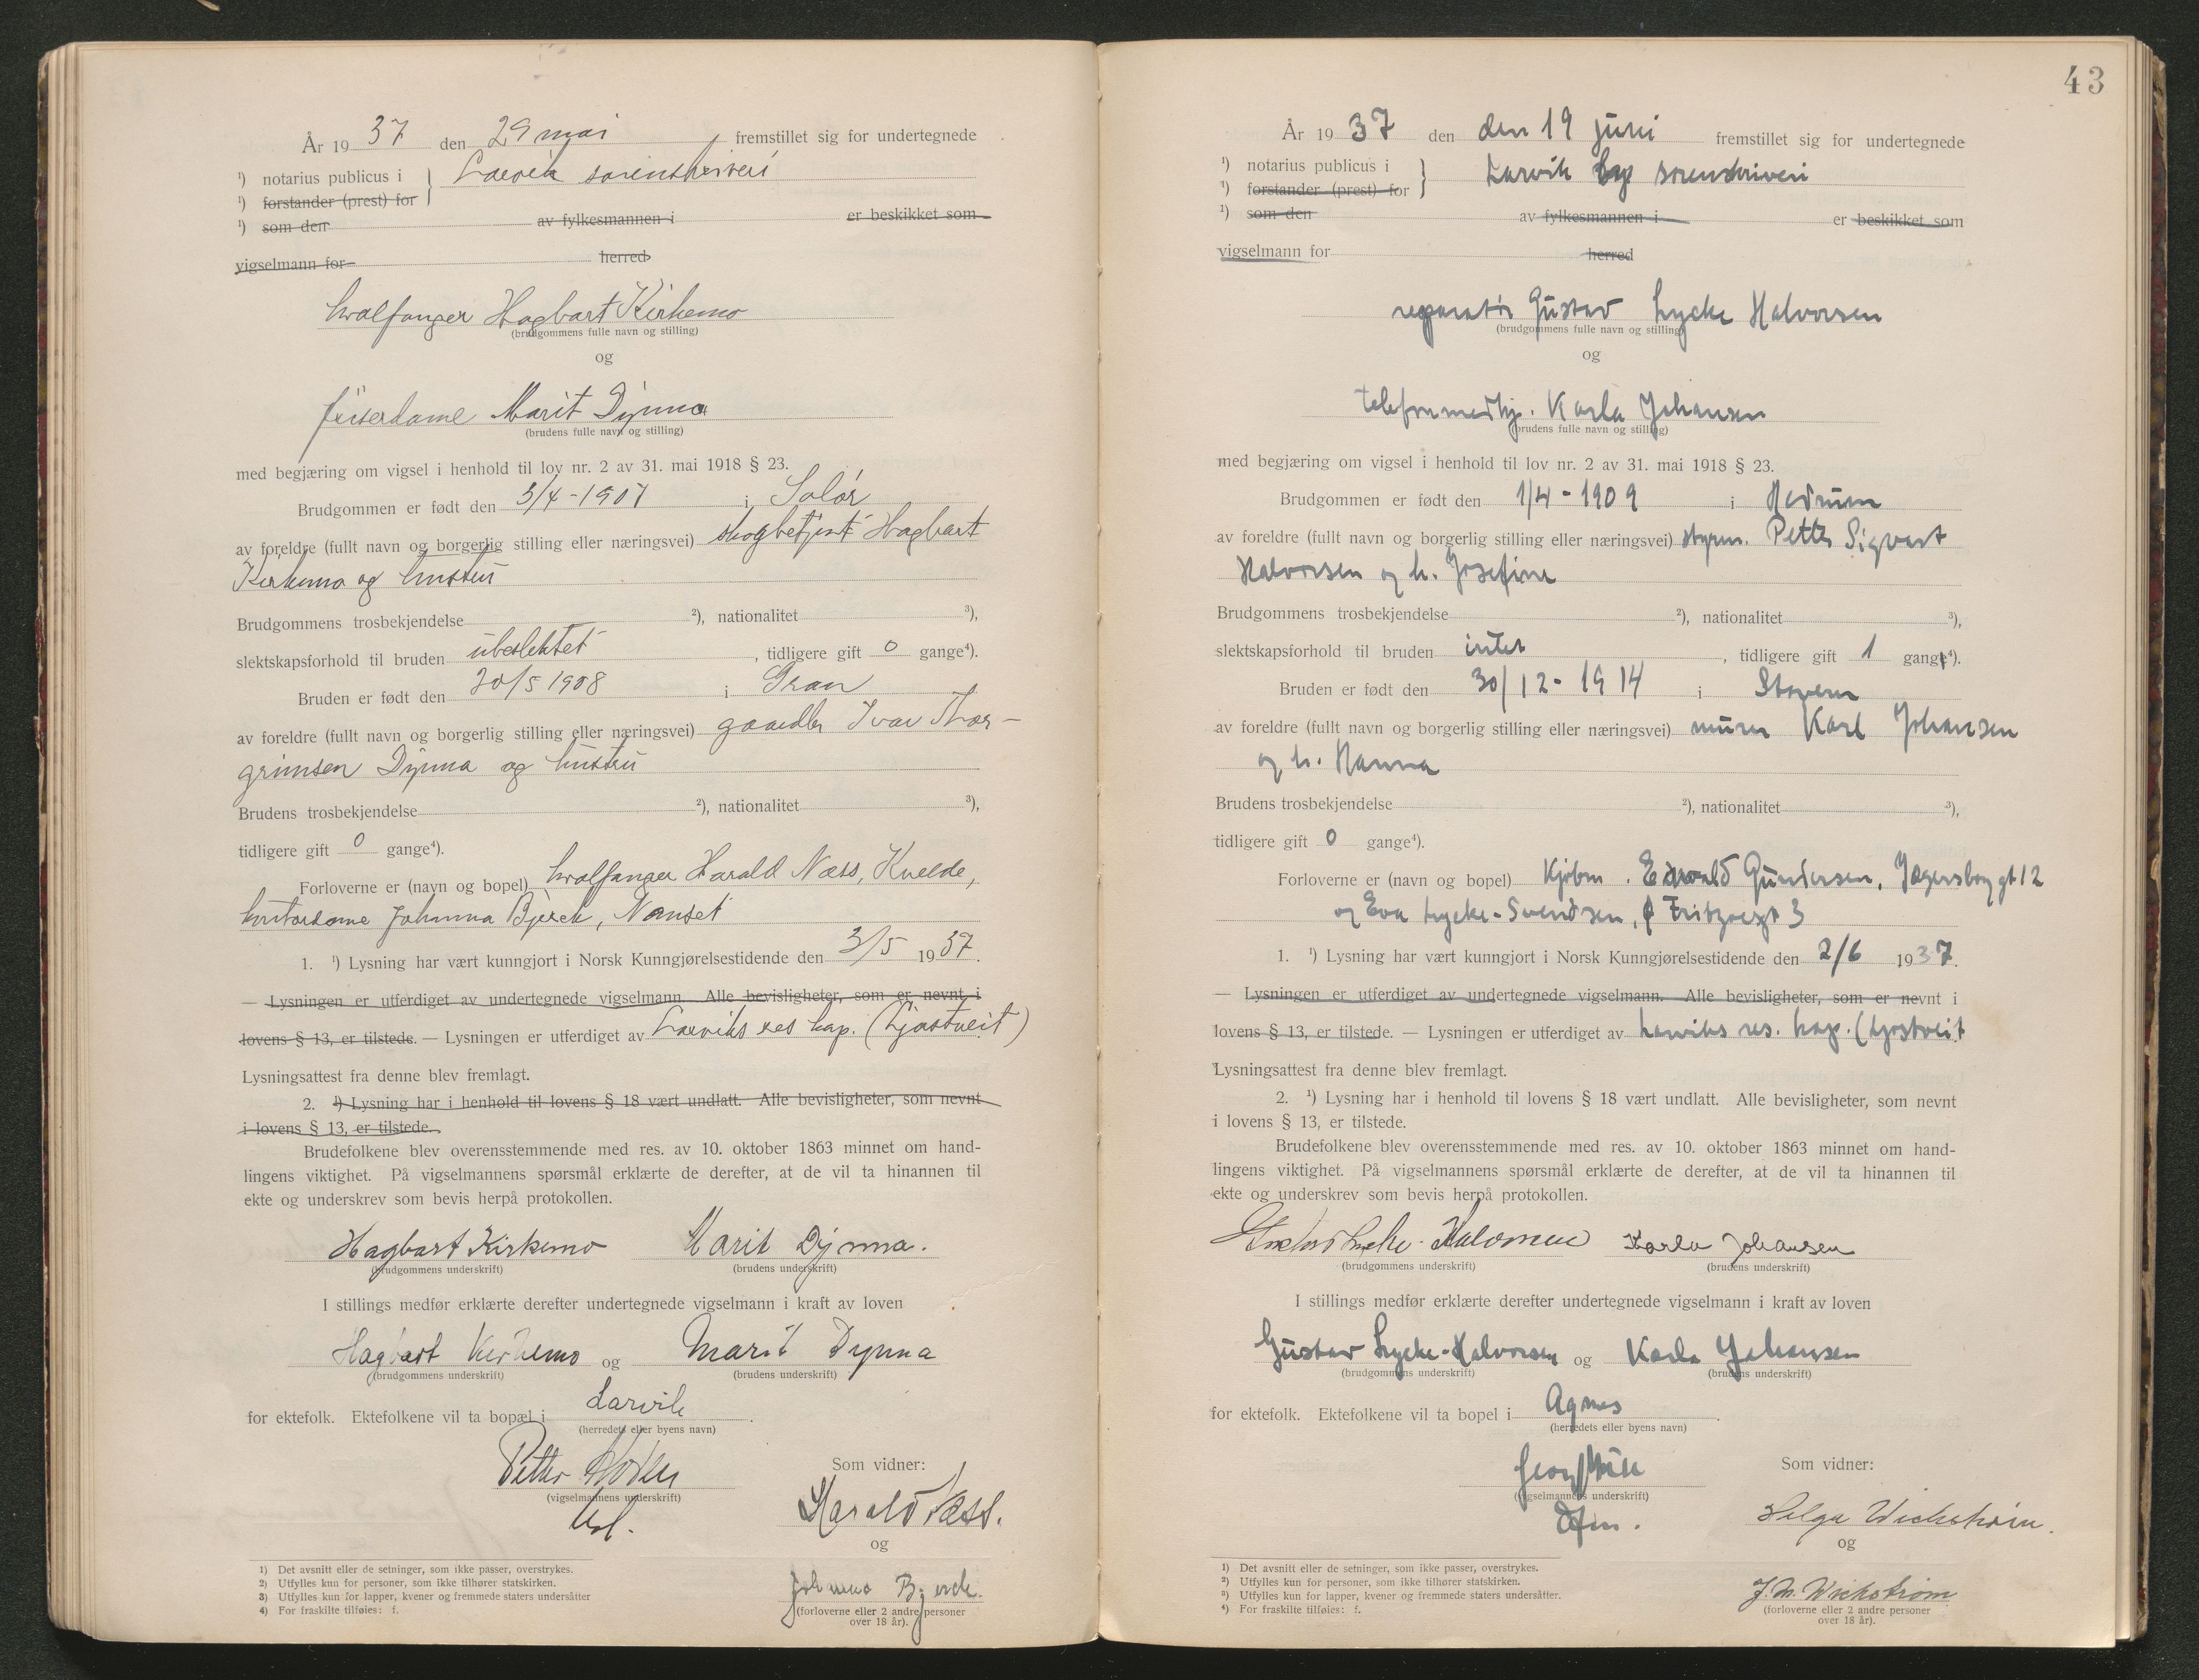 År 19 37 den 29 mai fremstillet sig for undertegnede
¹) notarius publicus i } Larvik sorenskriveri
¹) forstander (prest) for
¹) som den av fylkesmannen i er beskikket som
vigselmann for herred
hvalfanger Hagbart Kirkemo
(brudgommens fulle navn og stilling)
og
friserdame Marit Dynna
(brudens fulle navn og stilling)
med begjæring om vigsel i henhold til lov nr. 2 av 31. mai 1918 § 23.
Brudgommen er født den 3/4-1907 i Solør
av foreldre (fullt navn og borgerlig stilling eller næringsvei) skogbetjent Hagbart
Kirkemo og hustru
Brudgommens trosbekjendelse ²), nationalitet ³),
slektskapsforhold til bruden ubeslektet, tidligere gift 0 gange⁴).
Bruden er født den 20/5 1908 i Gran
av foreldre (fullt navn og borgerlig stilling eller næringsvei) gaardbr Ivar Thor-
grimsen Dynna og hustru
Brudens trosbekjendelse ²), nationalitet ³),
tidligere gift 0 gange⁴).
Forloverne er (navn og bopel) hvalfanger Harald Næss, Kvelde,
Johanna Bjerck, Nanset
1. ¹) Lysning har vært kunngjort i Norsk Kunngjørelsestidende den 3/5 1937.
— Lysningen er utferdiget av undertegnede vigselmann. Alle bevisligheter, som er nevnt i
lovens § 13, er tilstede. — Lysningen er utferdiget av Larviks res kap. (Gjostveit)
Lysningsattest fra denne blev fremlagt.
2. ¹) Lysning har i henhold til lovens § 18 vært undlatt. Alle bevisligheter, som nevnt
i lovens § 13, er tilstede.
Brudefolkene blev overensstemmende med res. av 10. oktober 1863 minnet om hand-
lingens viktighet. På vigselmannens spørsmål erklærte de derefter, at de vil ta hinannen til
ekte og underskrev som bevis herpå protokollen.
Hagbart Kirkemo Marit Dynna.
(brudgommens underskrift) (brudens underskrift)
I stillings medfør erklærte derefter undertegnede vigselmann i kraft av loven
Hagbart Kirkemo og Marit Dynna
(brudgommens underskrift) (brudens underskrift)
for ektefolk. Ektefolkene vil ta bopæl i Larvik.
(herredets eller byens navn)
Petter
(vigselmannens underskrift)
Som vidner:
Harald Næss.
og
Johanna Bjerck.
(forloverne eller 2 andre personer
over 18 år).
1) Det avsnitt eller de setninger, som ikke passer, overstrykes.
2) Utfylles kun for personer, som ikke tilhører statskirken.
3) Utfylles kun for lapper, kvener og fremmede staters undersåtter
4) For fraskilte tilføies: f.
43
År 19 37 den den 19 juni fremstillet sig for undertegnede
¹) notarius publicus i } Larvik by sorenskriveri
¹) forstander (prest) for
¹) som den av fylkesmannen i er beskikket som
vigselmann for herred
reparatør Gustav Lycke Halvorsen
(brudgommens fulle navn og stilling)
og
telefonmedhj. Karla Johansen
(brudens fulle navn og stilling)
med begjæring om vigsel i henhold til lov nr. 2 av 31. mai 1918 § 23.
Brudgommen er født den 1/4-1909 i Hedrum
av foreldre (fullt navn og borgerlig stilling eller næringsvei) styrm. Petter Sigvart
Halvorsen og h. Josefine
Brudgommens trosbekjendelse ²), nationalitet ³),
slektskapsforhold til bruden intet, tidligere gift 1 gange⁴).
Bruden er født den 30/12-1914 i Stavern
av foreldre (fullt navn og borgerlig stilling eller næringsvei) murer Karl Johansen
og h. Hanna
Brudens trosbekjendelse ²), nationalitet ³),
tidligere gift 0 gange⁴).
Forloverne er (navn og bopel) Kjøbm. Edvald Gundersen, Jegersborggt 12
og Eva Lycke-Svendsen, Fritzøegt 3
1. ¹) Lysning har vært kunngjort i Norsk Kunngjørelsestidende den 2/6 1937.
— Lysningen er utferdiget av undertegnede vigselmann. Alle bevisligheter, som er nevnt i
lovens § 13, er tilstede. — Lysningen er utferdiget av Larviks res. kap. (Gjostveit
Lysningsattest fra denne blev fremlagt.
2. ¹) Lysning har i henhold til lovens § 18 vært undlatt. Alle bevisligheter, som nevnt
i lovens § 13, er tilstede.
Brudefolkene blev overensstemmende med res. av 10. oktober 1863 minnet om hand-
lingens viktighet. På vigselmannens spørsmål erklærte de derefter, at de vil ta hinannen til
ekte og underskrev som bevis herpå protokollen.
Gustav Lycke-Halvorsen Karla Johansen
(brudgommens underskrift) (brudens underskrift)
I stillings medfør erklærte derefter undertegnede vigselmann i kraft av loven
Gustav Lycke-Halvorsen og Karla Johansen
(brudgommens underskrift) (brudens underskrift)
for ektefolk. Ektefolkene vil ta bopel i Agnes.
(herredets eller byens navn)
Georg
(vigselmannens underskrift)
Som vidner:
Helga Wickstrøm.
og
J. M. Wickstrøm
(forloverne eller 2 andre personer
over 18 år).
1) Det avsnitt eller de setninger, som ikke passer, overstrykes.
2) Utfylles kun for personer, som ikke tilhører statskirken.
3) Utfylles kun for lapper, kvener og fremmede staters undersåtter.
4) For fraskilte tilføies: f.